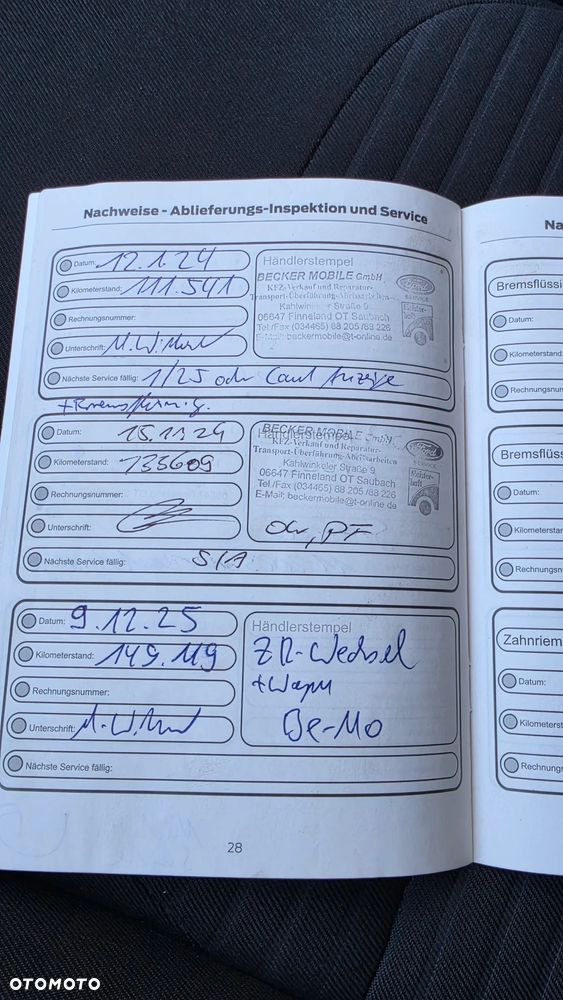 Nachweise - Ablieferungs-Inspektion und Service
Datum: 12.1.24
Kilometerstand: 111.541
Rechnungsnummer:
Unterschrift:
Nächste Service fällig: 1/25 oder laut Anzeige
Händlerstempel
BECKER MOBILE GmbH
KFZ-Verkauf und Reparatur-
Transport-Überführung-Abelassarbeiten
Kahlwinkeler Straße 9
06647 Finneland OT Saubach
Tel./Fax (034465) 88 205 /88 226
E-Mail: beckermobile@t-online.de
Ford
SERVICE
Datum: 15.11.24
Kilometerstand: 133609
Rechnungsnummer:
Unterschrift:
Nächste Service fällig: S/A
Händlerstempel
BECKER MOBILE GmbH
KFZ-Verkauf und Reparatur-
Transport-Überführung-Abelassarbeiten
Kahlwinkeler Straße 9
06647 Finneland OT Saubach
Tel./Fax (034465) 88 205 /88 226
E-Mail: beckermobile@t-online.de
Ford
SERVICE
Datum: 9.12.25
Kilometerstand: 149.119
Rechnungsnummer:
Unterschrift:
Nächste Service fällig:
Händlerstempel
ZR-Wechsel
Be-Mo
28
Na
Bremsflüssi
Datum:
Kilometerstand
Rechnungsnu
Bremsflüss
Datum:
Kilometerstan
Rechnungsn
Zahnriem
Datum:
Kilometerst
Rechnung
OTOMOTO